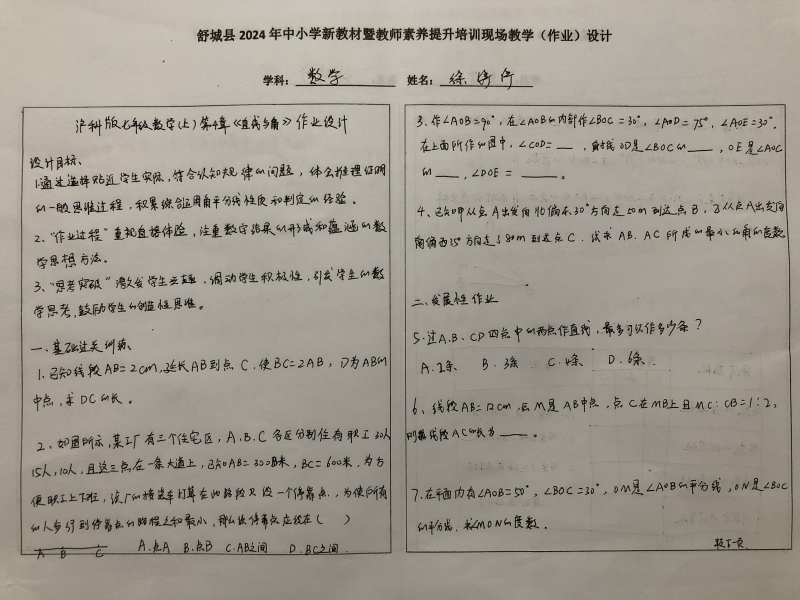 舒城县2024年中小学新教材暨教师素养提升培训现场教学（作业）设计
学科：数学 姓名：徐
沪科版七年级数学(上)第4章《直线与角》作业设计
设计目标、
1.通过选择贴近学生实际，符合认知规律的问题，体会推理证明
的一般思维过程，积累综合运用角平分线性质和判定的经验。
2、“作业过程”重视直接体验，注重数学结果的形成和蕴涵的数
学思想方法。
3、“思考突破”激发学生兴趣，调动学生积极性，引发学生的数
学思考，鼓励学生的创造性思维。
一、基础过关训练、
1.已知线段AB=2cm,延长AB到点C,使BC=2AB，D为AB的
中点，求DC的长。
2、如图所示，某工厂有三个住宅区，A、B、C各区分别住有职工30人
15人，10人，且这三点在一条大道上，已知AB=300米，BC=600米，为方
便职工上下班，该厂的接送车打算在此路段只设一个停靠点，为使所有
的人步行到停靠点的路程之和最小，那么该停靠点应设在( )
A B C A.点A B.点B C.AB之间 D.BC之间.
3、作∠AOB=90°，在∠AOB的内部作∠BOC=30°，∠AOD=75°，∠AOE=30°，
在上面所作的图中，∠COD=__，射线OD是∠BOC的__，OE是∠AOC
的__，∠DOE=__。
4、已知甲从点A出发向北偏东30°方向走50m到达点B，乙从点A出发向
南偏西35°方向走80m到达点C．试求AB、AC所成的最小的角的度数
二、发展性作业
5.过A、B、CD四点中的两点作直线，最多可以作多少条？
A.1条 B.3条 C.4条 D.6条.
6、线段AB=12cm，点M是AB中点，点C在MB上且MC：CB=1：2，
则线段AC的长为__。
7.在平面内有∠AOB=50°，∠BOC=30°，OM是∠AOB的平分线，ON是∠BOC
的平分线.求MON的度数.
接下一页.